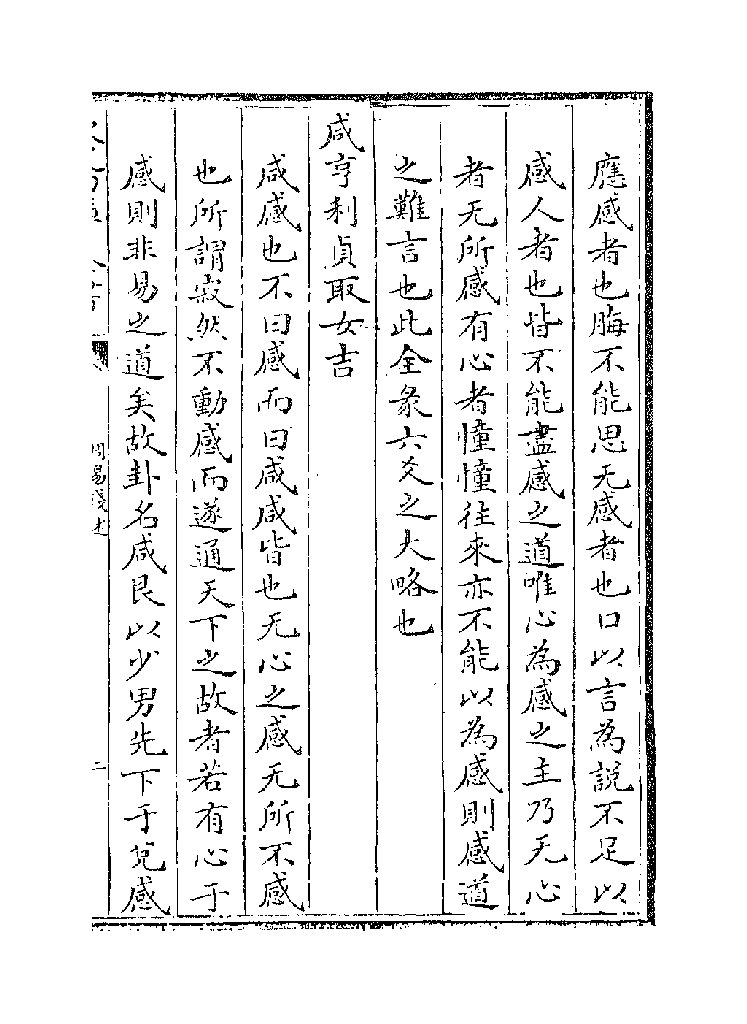 應感者也脢不能思无感者也口以言為說不足以
感人者也皆不能盡感之道唯心為感之主乃无心
者无所感有心者憧憧往來亦不能以為感則感道
之難言也此全彖六爻之大略也
咸亨利貞取女吉
咸感也不曰感而曰咸咸皆也无心之感无所不感
也所謂寂然不動感而遂通天下之故者若有心于
感則非易之道矣故卦名咸艮以少男先下于兌感
周易淺述
二